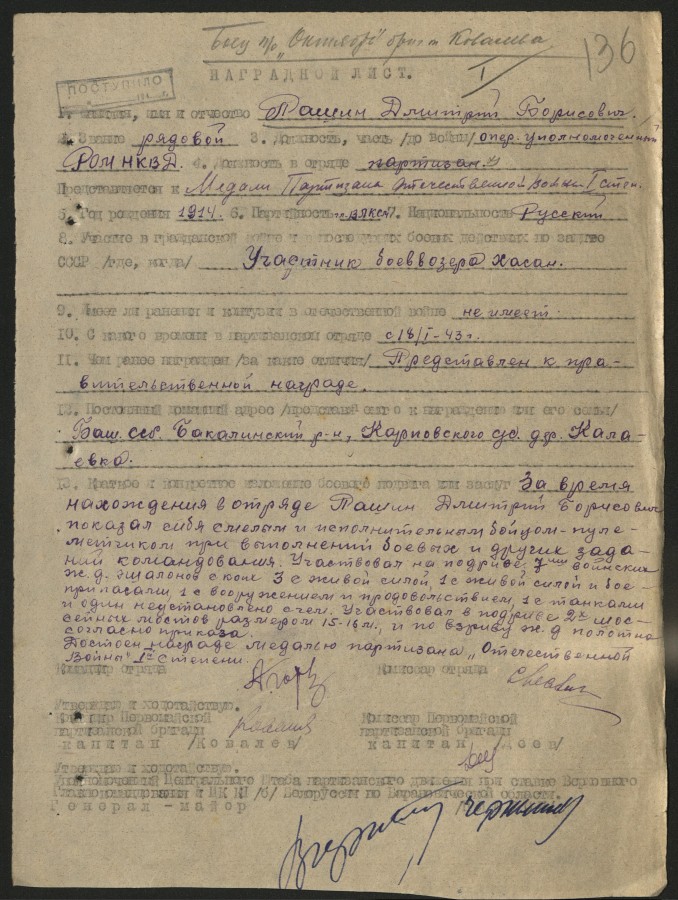 Боец п/о "Октябрь" бриг. Ковалева
136
НАГРАДНОЙ ЛИСТ.
ПОСТУПИЛО
I
1. Фамилия, имя и отчество Рашин Дмитрий Борисович.
2. Звание рядовой 3. Должность, часть /до войны/ опер. уполномоченный
РОМ НКВД. 4. Должность в отряде партизан.
Представляется к Медали Партизана Отечественной Войны I степ.
5. Год рождения 1914. 6. Партийность 7. Национальность Русский
8. Участие в гражданской войне и последующих боевых действиях по защите
СССР /где, когда/ Участник боев возера Хасан.
9. Имеет ли ранения и контузии в отечественной войне не имеет.
10. С какого времени в партизанском отряде с 18/I-43 г.
11. Чем ранее награжден /за какие отличия/ Представлен к пра-
вительственной награде.
12. Постоянный домашний адрес /представляемого к награждению или его семьи/
Баш. ССР. Бакалинский р-н, Карповского с/с. дер. Кала-
евка.
13. Краткое и конкретное изложение боевого подвига или заслуг За время
нахождения в отряде Рашин Дмитрий Борисович
показал себя смелым и исполнительным бойцом-пуле-
метчиком при выполнений боевых и других зада-
ний командования. Участвовал на подриве 7ми воинских
ж.д. эшалонов с коих 3 с живой силой, 1 с живой силой и бое-
припасами, 1 с вооружением и продовольствием, 1 с танками
и один неустановлено с чем. Участвовал в подриве 2х шос-
сейных мостов размером 15-16 м., и по взриву ж.д полотна
согласно приказа.
Достоен награде медалью партизана "Отечественной
Войны" 1й степени.
Командир отряда Комиссар отряда
Утверждаю и ходотайствую.
Командир Первомайской Комиссар Первомайской
партизанской бригады партизанской бригады
капитан /Ковалев/ капитан /Доев/
Утверждаю и ходотайствую.
Уполномоченный Центрального Штаба партизанского движения при ставке Верховного
Главнокомандования и ЦК КП /б/ Белоруссии по Барановичской области.
Генерал-майор Чернышев